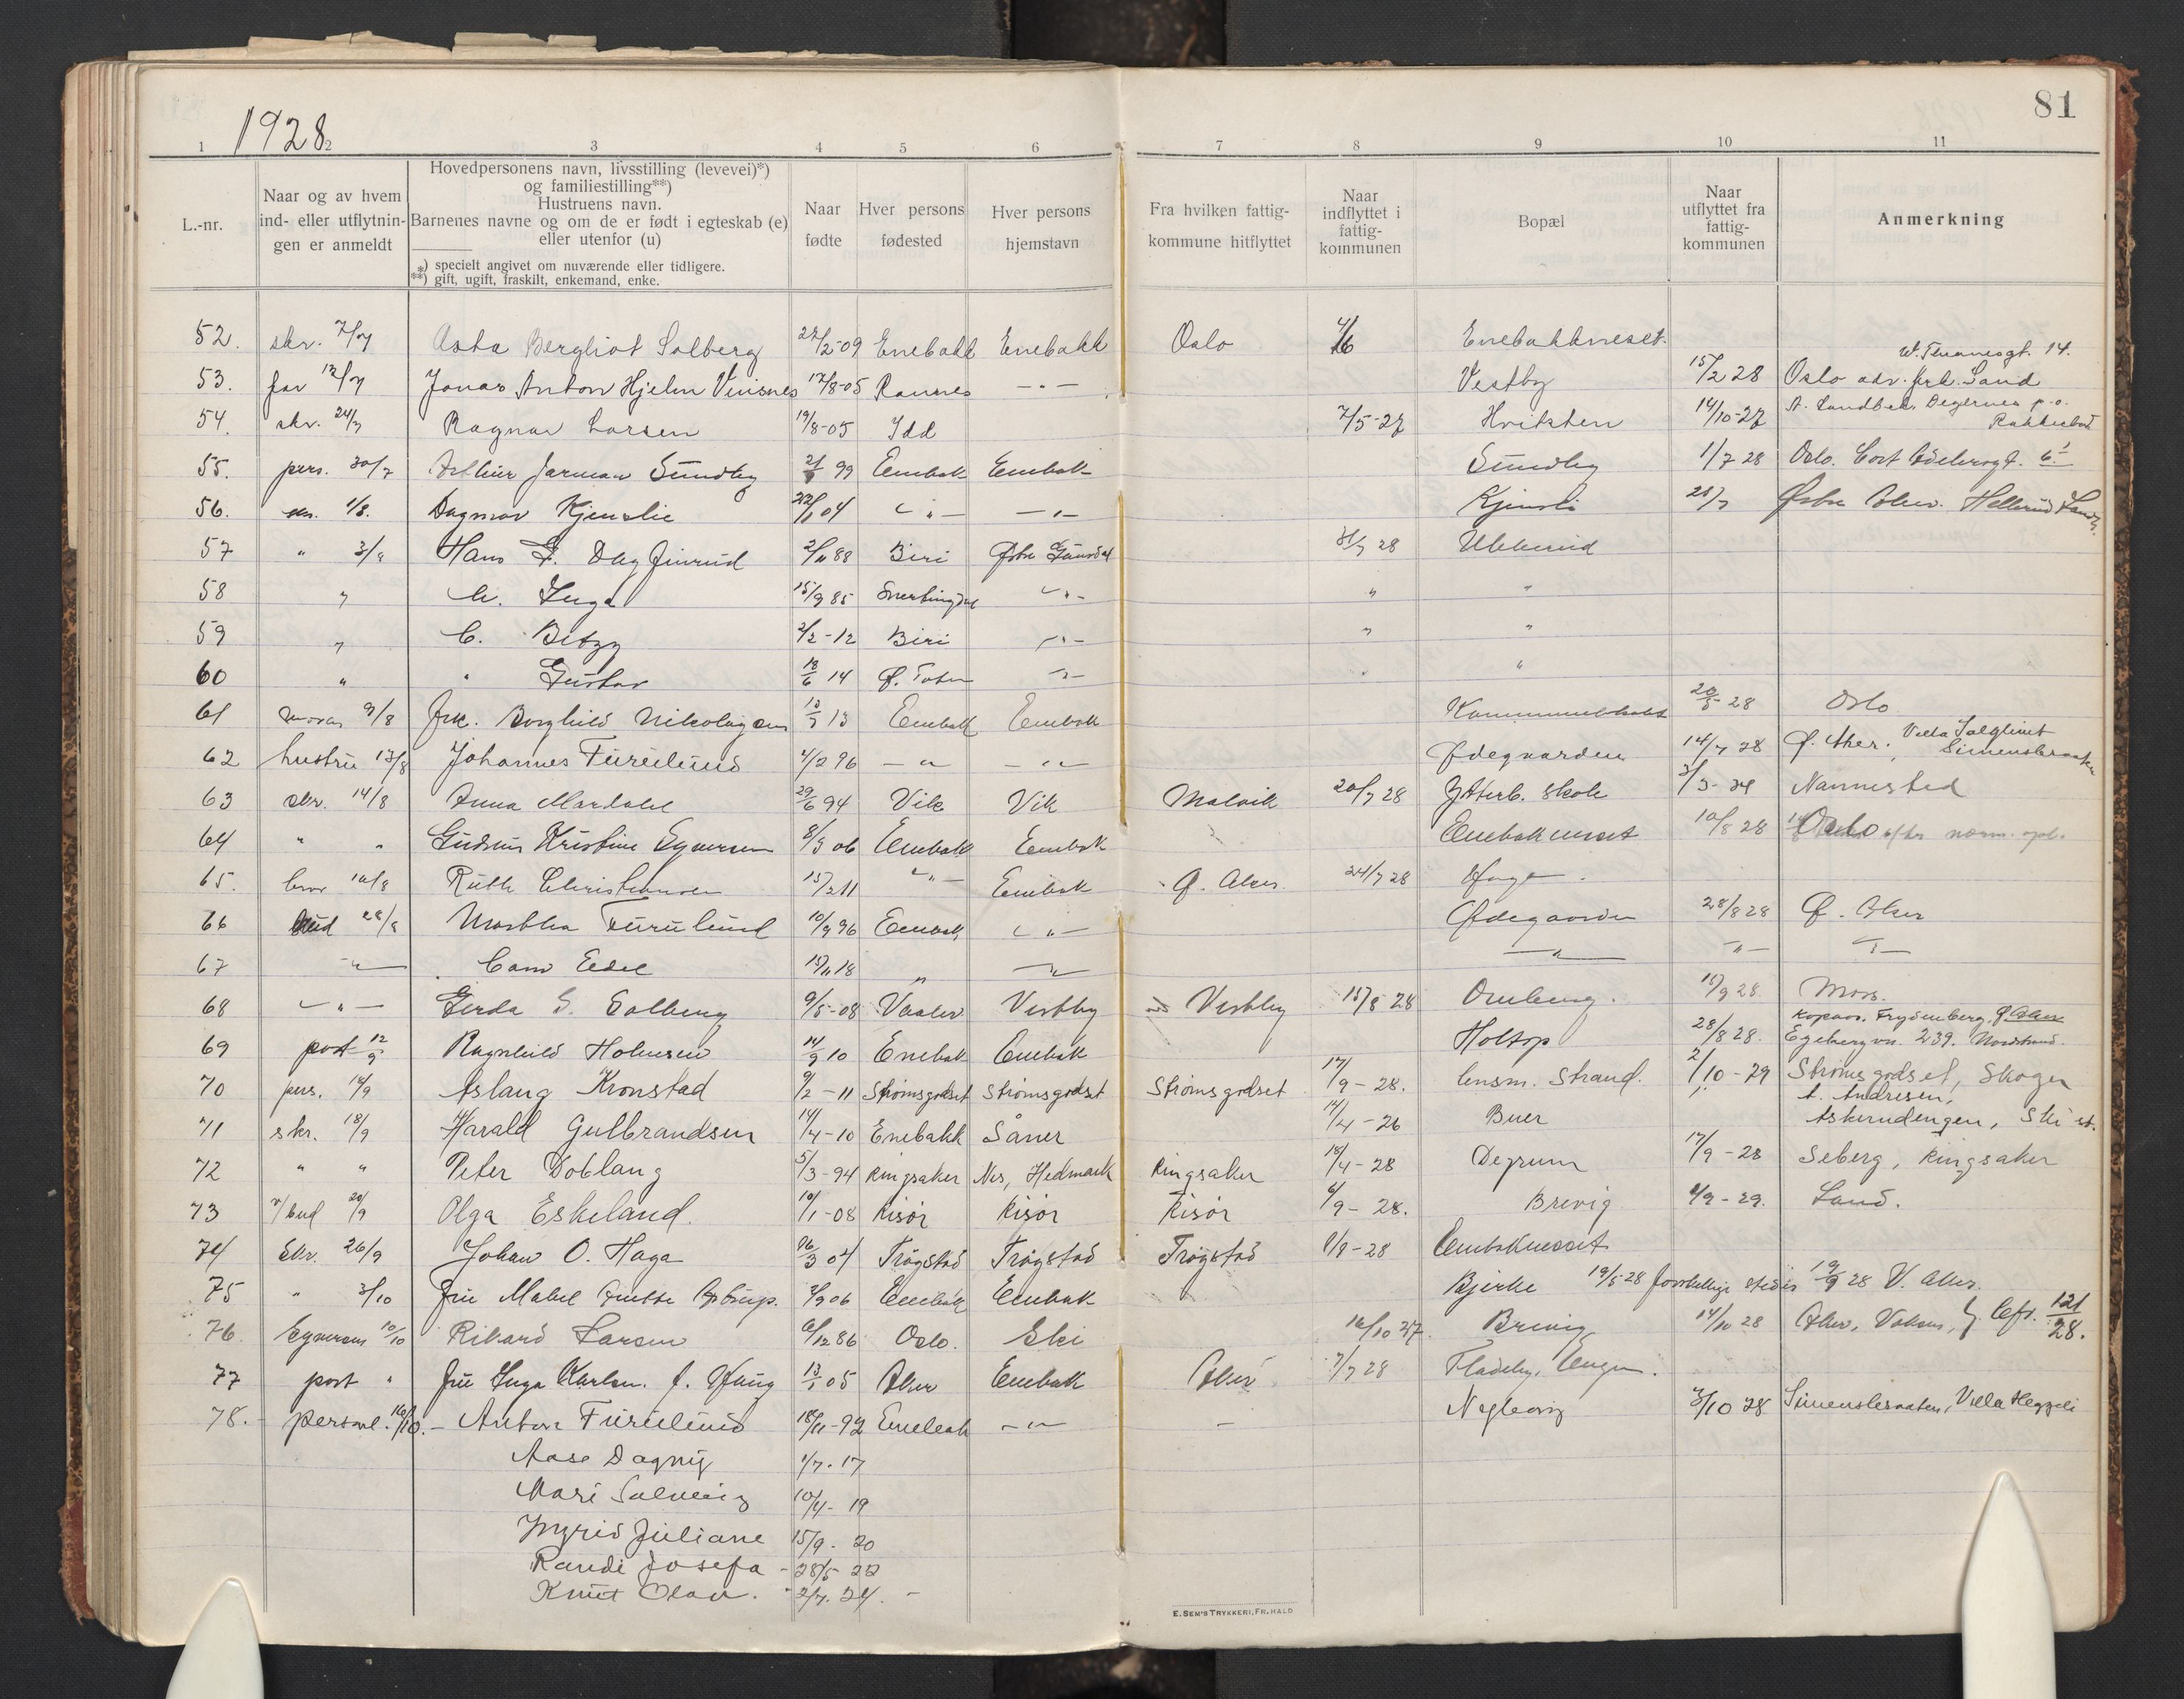 1928
81
1 2 3 4 5 6 7 8 9 10 11
L.-nr.
Naar og av hvem
ind- eller utflytnin-
gen er anmeldt
Hovedpersonens navn, livsstilling (levevei)*)
og familiestilling**)
Hustruens navn.
Barnenes navne og om de er født i egteskab (e)
eller utenfor (u)
*) specielt angivet om nuværende eller tidligere.
**) gift, ugift, fraskilt, enkemand, enke.
Naar
fødte
Hver persons
fødested
Hver persons
hjemstavn
Fra hvilken fattig-
kommune hitflyttet
Naar
indflyttet i
fattig-
kommunen
Bopæl
Naar
utflyttet fra
fattig-
kommunen
Anmerkning
52. skr. 7/7 Asta Bergliot Solberg 27/2-09 Enebakk Enebakk Oslo 4/6 Enebakkneset.
53. far 12/7 Jonas Anton Hjelm 17/8-05 — " — Vestby 15/2 28 Oslo adv. frk. Sand 14.
54. skr. 24/7 Ragnar Larsen 19/8-05 Idd 7/5-27 Hvitsten 14/10-27 Degernes p.o.
55. pers. 30/7 Arthur Jarman Sundby 99 Enebak Enebak Sundby 1/7 28 Oslo.
56. 1/8. Dagmar Kjenslie 04 — " — — " — Kjensli 28/7 Østre Aker. Hellerud
57 " 3/8 Hans Dagfinrud 88 Biri Østre 28 Ubberud
58 " Inga 15/9 85 — " — " "
59 " Betzy 2/2-12 Biri — " — " "
60 " " Gustav 18/6 14 Ø. Toten — " — " "
61 9/8 frk. Borghild Nikolaysen 13 Enebak Enebak 28 Oslo
62 hustru 13/8 Johannes Furulund 4/2 96 — " — — " — Ødegaarden 14/7 28 Ø. Aker. Villa Simensbraaten
63 skr. 14/8 Anna Mardahl 29/6 94 Vik Vik Malvik 20/7 28 Ytterb. skole Nannestad
64 " " Gudrun Kristine 06 Enebak Enebak Enebakneset 10/8 28 Oslo
65. 10/8 Ruth Christiansen 11 — " — Enebak Ø. Aker 24/7 28
66 bud 28/8 Martha Furulund 10/9 96 Enebak — " — Ødegaarden 28/8 28 Ø. Aker
67 — " — 15/11 18 " — " — — " — — " — — " —
68 — " — Gerda Solberg 9/5-08 Vaaler Vestby Vestby 15/8 28 Omberg. 15/9 28 Moss.
69 post 12/9 Ragnhild Holmsen 14/9 10 Enebak Enebak Holtop 28/8 28. Frydenberg, Ø. Aker
Egebergvn. 239. Nordstrand.
70 pers. 14/9 Aslaug Kronstad 9/2-11 Strømsgodset Strømsgodset Strømsgodset 17/9-28. lensm. Strand. 2/10-29 Strømsgodset, Skoger
71 skr. 18/9 Harald Gulbrandsen 14/4-10 Enebakk Såner 14/4-26 Buer A. Andresen,
Askerudengen, Ski st.
72 " " Peter Doblaug 5/3-94 Ringsaker Nes, Hedmark Ringsaker 18/4-28 Degrum 17/9-28 Seberg, Ringsaker
73 v/bud 20/9 Olga Eskeland. 10/1-08 Risør Risør Risør 6/9-28. Brevig Sand.
74 Skr. 26/9 Johan O. Haga 26/3 04 Trøgstad Trøgstad Trøgstad 1/9-28 Enebakneset
75 " 3/10 Fru Mabel 06 Enebak Enebak Bjerke 19/5 28 forskellige steder 19/9 28 V. Aker.
76. 10/10 Rikard Larsen 6/12 86 Oslo. Ski 16/10 27. Brevig 14/10 28 Aker, Voksen, Cfr. 121/28.
77 post " Fru Inga Karlsen f. 05 Aker Enebak Aker 28 Fladeby,
78. personl. 16/10. — Anton Furulund 18/11-92 Enebak — " — — 3/10 28 Simensbraaten, Villa Heggeli
Aase Dagny 1/7-17
Mari Solveig 10/4-19
Ingrid Juliane 15/9-20
Randi Josefa - 28/5-22
Knut Olav. - 2/7. 24. -
E. SEM'S TRYKKERI, FR.HALD